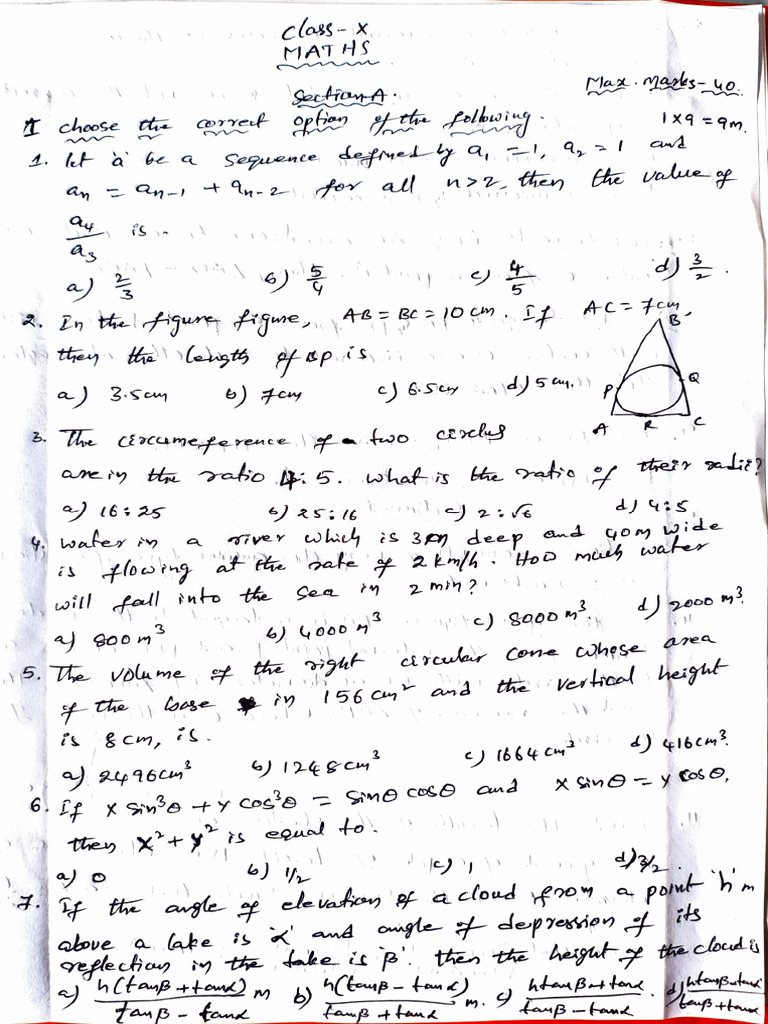 Class - X
MATHS
Max. Marks - 40.
Section A.
I choose the correct option of the following. 1 x 9 = 9m.
1. let 'a' be a sequence defined by a₁ = 1, a₂ = 1 and
aₙ = aₙ₋₁ + aₙ₋₂ for all n > 2, then the value of
a₄/a₃ is -
a) 2/3 b) 5/4 c) 4/5 d) 3/2.
2. In the figure figure, AB = BC = 10 cm. If AC = 7 cm,
then the length of BP is
a) 3.5cm b) 7cm c) 6.5cm d) 5 cm.
B
P
Q
A R C
3. The circumeference of two circles
are in the ratio 4:5. what is the ratio of their radii?
a) 16 : 25 b) 25 : 16 c) 2 : √6 d) 4 : 5
4. water in a river which is 3m deep and 40m wide
is flowing at the rate of 2 km/h. How much water
will fall into the sea in 2 min?
a) 800 m³ b) 4000 m³ c) 8000 m³ d) 2000 m³.
5. The volume of the right circular cone whose area
of the base in 156 cm² and the vertical height
is 8 cm, is.
a) 2496cm³ b) 1248cm³ c) 1664cm³ d) 416cm³.
6. If x sin³θ + y cos³θ = sinθ cosθ and x sinθ = y cosθ,
then x² + y² is equal to.
a) 0 b) 1/2 c) 1 d) 3/2.
7. If the angle of elevation of a cloud from a point 'h' m
above a lake is 'α' and angle of depression of its
reflection in the lake is 'β'. then the height of the cloud is
a) h(tanβ + tanα)/tanβ - tanα m b) h(tanβ - tanα)/tanβ + tanα m. c) htanβ + tanα/tanβ - tanα . d) htanβ - tanα/tanβ + tanα